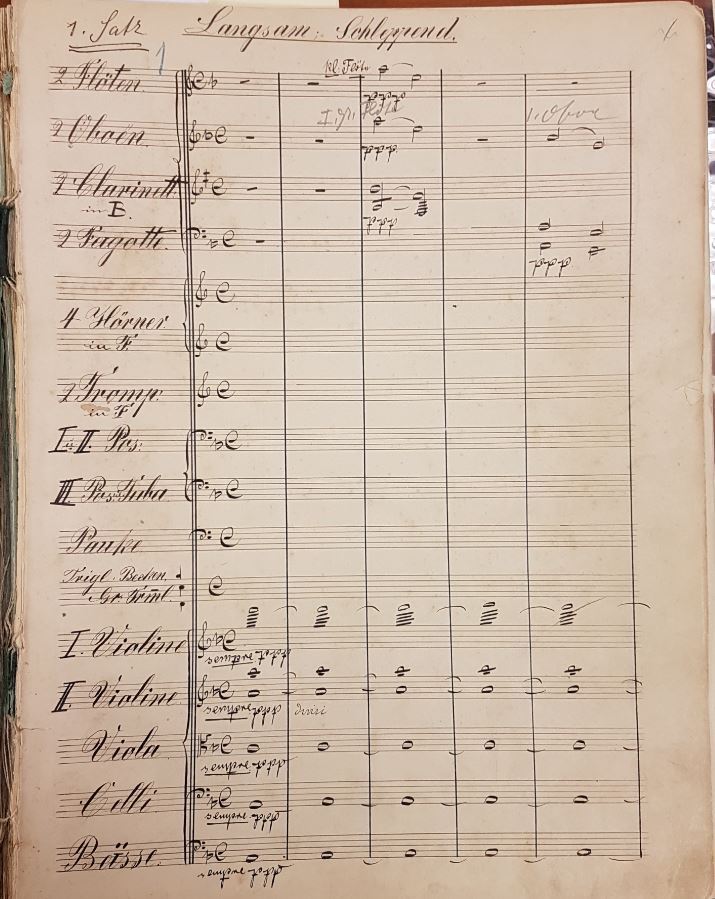 1. Satz Langsam; Schleppend.
1
2 Flöten. kl. Flöte
ppp
2 Oboen 1. Oboe
ppp
2 Clarinett
in B. ppp
2 Fagotte. ppp
4 Hörner
in F.
2 Tromp.
in F
I u II. Pos.
III. Pos: Tuba
Pauke
Trigl. Becken
Gr. Trml.
I. Violine
sempre pppp
II. Violine
sempre pppp divisi
Viola
sempre pppp
Celli
sempre pppp
Bässe.
sempre pppp